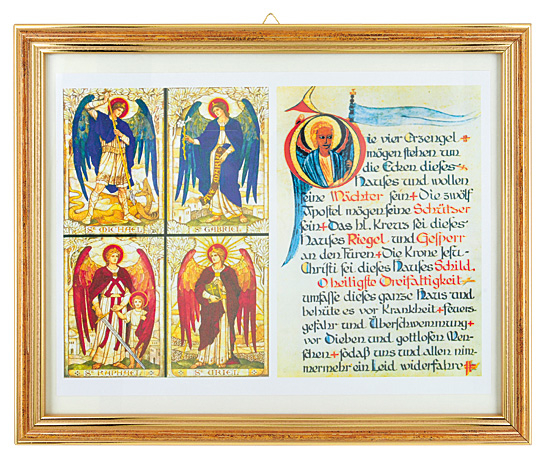 St MICHAEL
St GABRIEL
St RAPHAEL
St URIEL
Die vier Erzengel
mögen stehen um
die Ecken dieses
Hauses und wollen
seine Wächter sein + Die zwölf
Apostel mögen seine Schützer
sein + Das hl. Kreuz sei dieses
Hauses Riegel und Gesperr
an den Türen + Die Krone Jesu
Christi sei dieses Hauses Schild.
O heiligste Dreifaltigkeit
umfasse dieses ganze Haus und
behüte es vor Krankheit + Feuers-
gefahr und Überschwemmung +
vor Dieben und gottlosen Men-
schen + sodaß uns und allen nim-
mermehr ein Leid widerfahre +